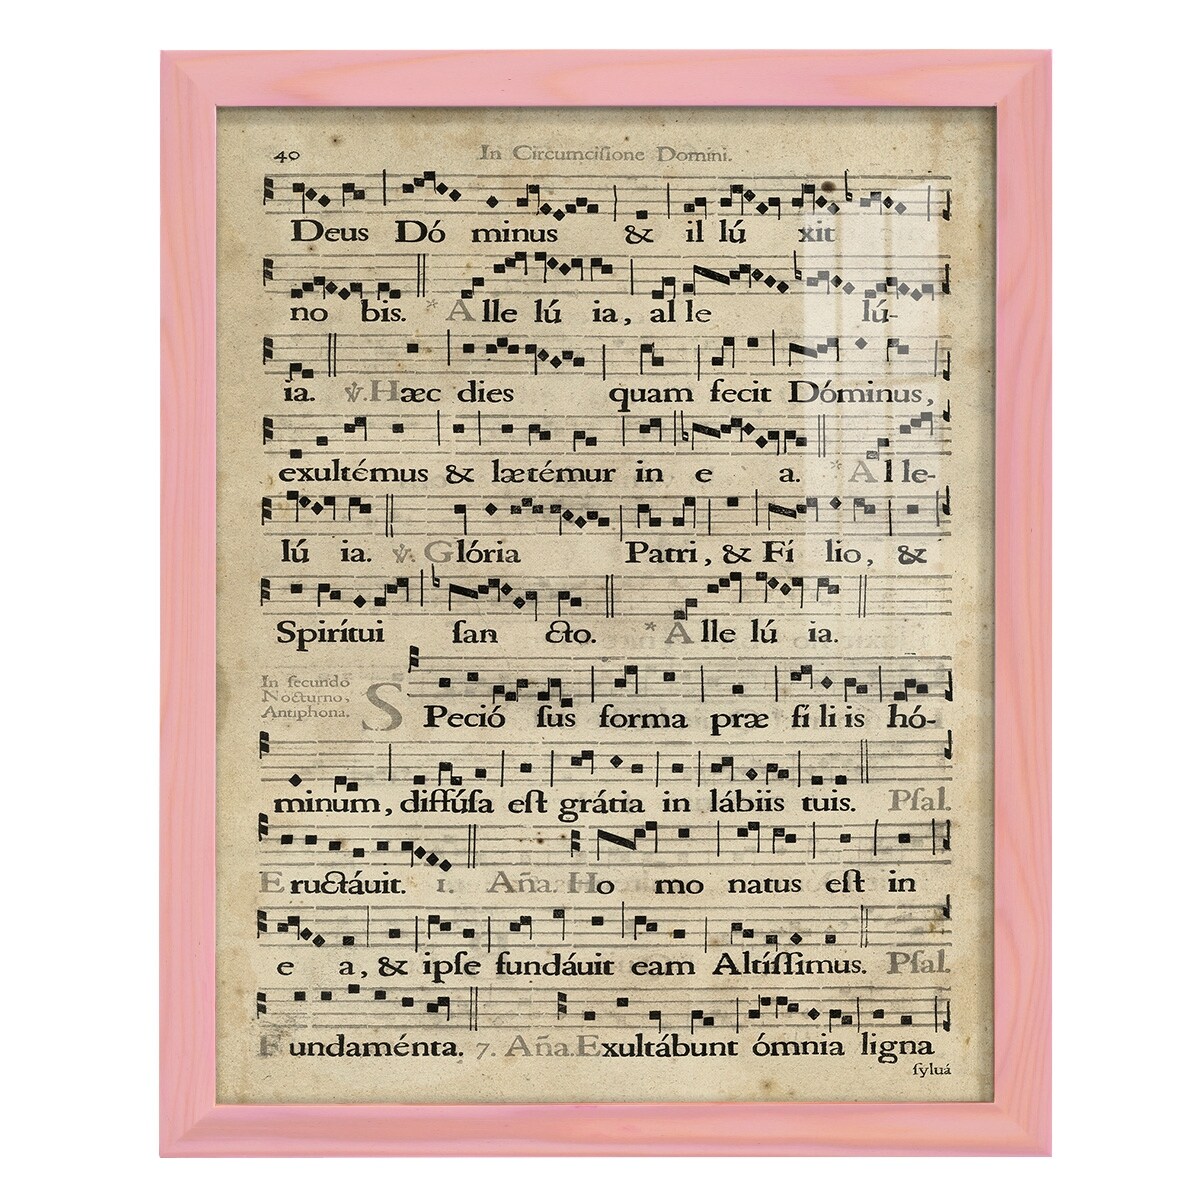 40 In Circumciſione Domini.
Deus Dó minus & il lú xit
no bis. * A lle lú ia, al le lú-
ia. ℣. Hæc dies quam fecit Dóminus,
exultémus & lætémur in e a. * A l le-
lú ia. ℣. Glória Patri, & Fí lio, &
Spirítui ſan cto. * A lle lú ia.
In ſecundo
Nocturno,
Antiphona.
S Peció ſus forma præ fí li is hó-
minum, diffúſa eſt grátia in lábiis tuis. Pſal.
E ructáuit. 1. Aña. Ho mo natus eſt in
e a, & ipſe fundáuit eam Altíſſimus. Pſal.
F undaménta. 7. Aña. Exultábunt ómnia ligna
ſyluá